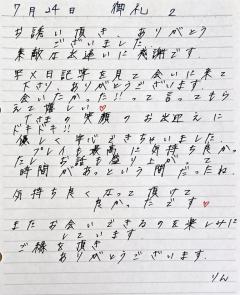 7月24日 御礼 2
お誘い頂き、ありがとう
ございました。
素敵な出逢いに感謝です。
写メ日記等を見て会いに来て
下さり、ありがとうございます。
会いたかった!!って言ってもら
えて嬉しい♥
Tさまの笑顔のお出迎えに
ドキドキ!!
優しく
プレイも最高に気持ち良か
ったし、お話も盛り上がって
時間があっという間だったね。
気持ち良くなって頂けて
良かったです♥
またお会いできるのを楽しみに
しています
ご縁を頂き
ありがとうございます。
りん